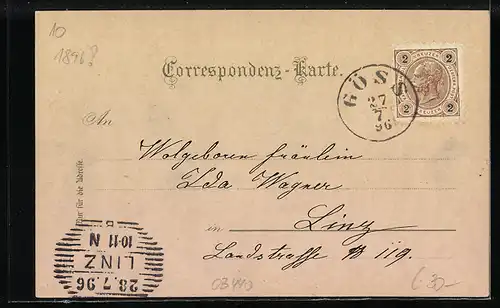 10
1896?
Correspondenz-Karte.
2 2
KREUZER
2 2
GÖSS
27
7
96
An
Wolgeboren Fräulein
Ida Wagner
in Linz
Landstrasse № 119.
Nur für die Adresse.
28.7.96
LINZ
10-11 N